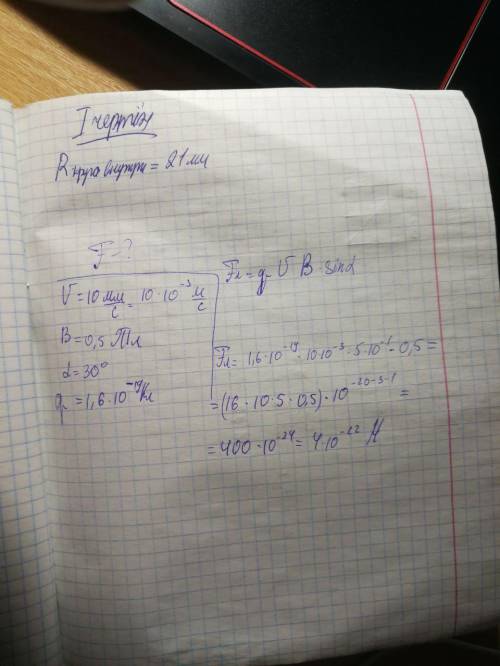 I чертіж
R круга внутри = 21 мм
F-?
V = 10 мм/с = 10·10⁻³ м/с
B = 0,5 Тл
α = 30°
q = 1,6·10⁻¹⁹ Кл
Fл = q V B·sinα
Fл = 1,6·10⁻¹⁹·10·10⁻³·5·10⁻¹·0,5 =
= (16·10·5·0,5)·10⁻²⁰⁻³⁻¹ =
= 400·10⁻²⁴ = 4·10⁻²² Н